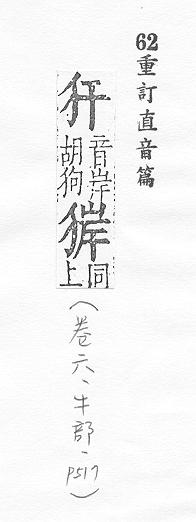 62重訂直音篇
犴
音岸
胡狗
同
上
（卷六、牛部、P517）